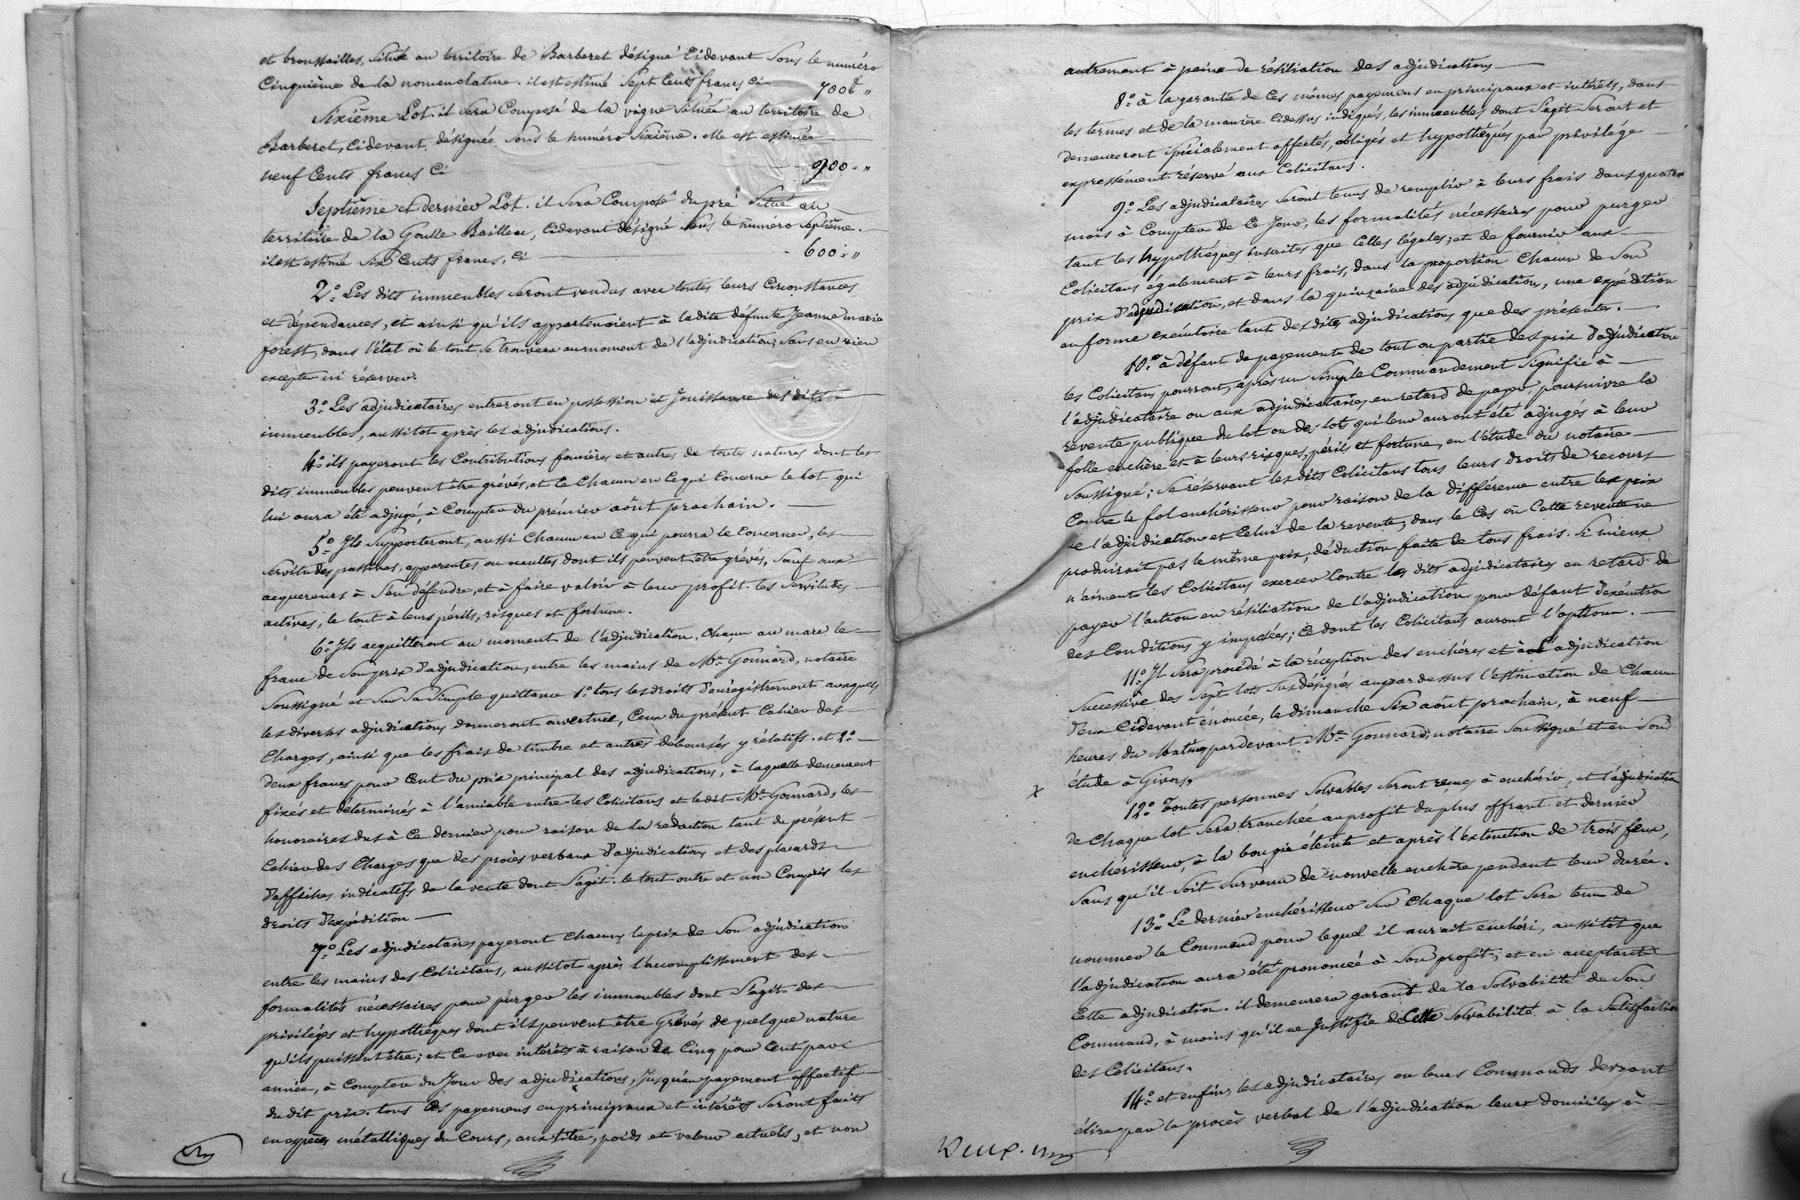 et broussailles, Situé au térritoire de Barberet désigné Cidevant Sous le numéro
Cinquième de la nomenclature. il est estimé Sept Cents francs Ci 700 f "
Sixième Lot. il Sera Composé de la vigne Située au térritoire de
Barberet, Cidevant désignée Sous le numéro Sixième. elle est estimée
neuf Cents francs Ci 900 - "
Septième et dernier Lot. il Sera Composé du pré Situé au
territoire de la Goulle Bailleu, Cidevant désigné Sous le numéro Septième.
il est estimé Six Cents francs, Ci 600 - "
2.° Les dits immeubles Seront vendus avec toutes leurs Circonstances
et dépendances, et ainsi qu'ils appartenaient à ladite défunte Jeanne marie
forest, dans l'état où le tout Se trouvera au moment de l'adjudication, Sans en rien
excepter ni réserver.
3.° Les adjudicataires entreront en possession et Jouissance des dits
immeubles, aussitot après les adjudications.
4.° ils payeront les Contributions foncières et autres de toutes natures dont les
dits immeubles peuvent être grévés, et Ce Chacun en Ce qui Concerne le lot qui
lui aura été adjugé, à Compter du prémier août prochain.
5.° Ils Supporteront, aussi Chacun en Ce qui pourra le Concerner, les
Servitudes passives, apparentes ou occultes dont ils peuvent être grévés, Sauf aux
acquereurs à S'en défendre, et à faire valoir à leur profit les Servitudes
actives, le tout à leurs périls, risques et fortune.
6.° Ils acquitteront au moment de l'adjudication, Chacun au marc le
franc de Son prix d'adjudication, entre les mains de Me. Gonnard, notaire
Soussigné et Sur Sa Simple quittance 1.° tous les droits d'enrégistrement auxquels
les diverses adjudications donneront ouverture, Ceux du présent Cahier des
Charges, ainsi que les frais de timbre et autres déboursés y rélatifs. et 2.°
deux francs pour Cent du prix principal des adjudications, à laquelle demeurent
fixés et déterminés à l'amiable entre les Colicitans et ledit Me. Gonnard, les
honoraires dus à Ce dernier pour raison de la rédaction tant du présent
Cahier des Charges que des procès verbaux d'adjudications et des placards
d'affiches indicatifs de la vente dont S'agit. le tout outre et non Compris les
droits d'expédition
7.° Les adjudicataires payeront Chacun le prix de Son adjudication
entre les mains des Colicitans, aussitot après l'accomplissement des
formalités nécessaires pour purger les immeubles dont S'agit des
priviléges et hypothèques dont ils peuvent être Grévés de quelque nature
qu'ils puissent être; et Ce avec intérêts à raison de Cinq pour Cent par
année, à Compter du Jour des adjudications, Jusqu'au payement effectif
du dit prix. tous Ces payemens en principaux et intérêts Seront faits
en espèces métalliques de Cours, aux titre, poids et valeur actuels, et non
autrement à peine de résiliation des adjudications
8.° à la garantie de Ces mêmes payemens en principaux et intérêts, dans
les termes et de la manière Cidessus indiqués, les immeubles dont S'agit Seront et
demeureront Spécialement affectés, obligés et hypothéqués par privilége
expressément réservé aux Colicitans.
9.° Les adjudicataires Seront tenus de remplir à leurs frais dans quatre
mois à Compter de Ce Jour, les formalités nécessaires pour purger
tant les hypothèques inscrites que Celles légales, et de fournir aux
Colicitans également à leurs frais, dans la proportion Chacun de Son
prix d'adjudication, et dans la quinzaine des adjudications, une expédition
en forme exécutoire tant des dites adjudications que des présentes.
10.° à défaut de payement de tout ou partie des prix d'adjudication
les Colicitans pourront, après un Simple Commandement Signifié à
l'adjudicataire ou aux adjudicataires en retard de payer poursuivre la
revente publique du lot ou des lots qui leur auront été adjugés à leur
folle enchère et à leurs risques, périls et fortune, en l'étude du notaire
Soussigné; Se réservant les dits Colicitans tous leurs droits de recours
Contre le fol enchérisseur pour raison de la différence entre les prix
de l'adjudication et Celui de la revente, dans le Cas où Cette revente ne
produirait pas le même prix, déduction faite de tous frais. Si mieux
n'aiment les Colicitans exercer Contre les dits adjudicataires en retard de
payer l'action en résiliation de l'adjudication pour défaut d'exécution
des Conditions y imposées; Ce dont les Colicitans auront l'option.
11.° Il Sera procédé à la réception des enchères et à l'adjudication
Successive des Sept lots Susdésignés au par dessus l'estimation de Chacun
d'eux Cidevant énoncée, le dimanche Six août prochain, à neuf
heures du Matin, pardevant Me. Gonnard, notaire Soussigné et en Son
étude à Givors.
12.° Toutes personnes Solvables Seront reçues à enchérir, et l'adjudication
de Chaque lot Sera tranchée au profit du plus offrant et dernier
enchérisseur, à la bougie éteinte et après l'extinction de trois feux,
Sans qu'il Soit Survenu de nouvelle enchère pendant leur durée.
13.° Le dernier enchérisseur Sur Chaque lot Sera tenu de
nommer le Command pour lequel il aurait enchéri, aussitôt que
l'adjudication aura été prononcée à Son profit; et en acceptant
Cette adjudication. il demeurera garant de la Solvabilité de Son
Command, à moins qu'il ne Justifie de Cette Solvabilité à la Satisfaction
des Colicitans.
14.° et enfin, les adjudicataires ou leurs Commands devront
élire par le procès verbal de l'adjudication leurs domiciles à